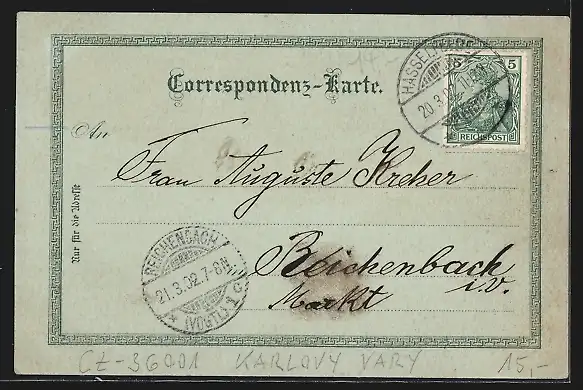 Correspondenz-Karte.
5
REICHSPOST
20.3.02
An
Frau Auguste Kreher
Nur für die Adresse
REICHENBACH
21.3.02.7-8N
* (VOGTL) 1 c
Reichenbach
i.v.
Markt
CZ-36001 KARLOVY VARY 15,-